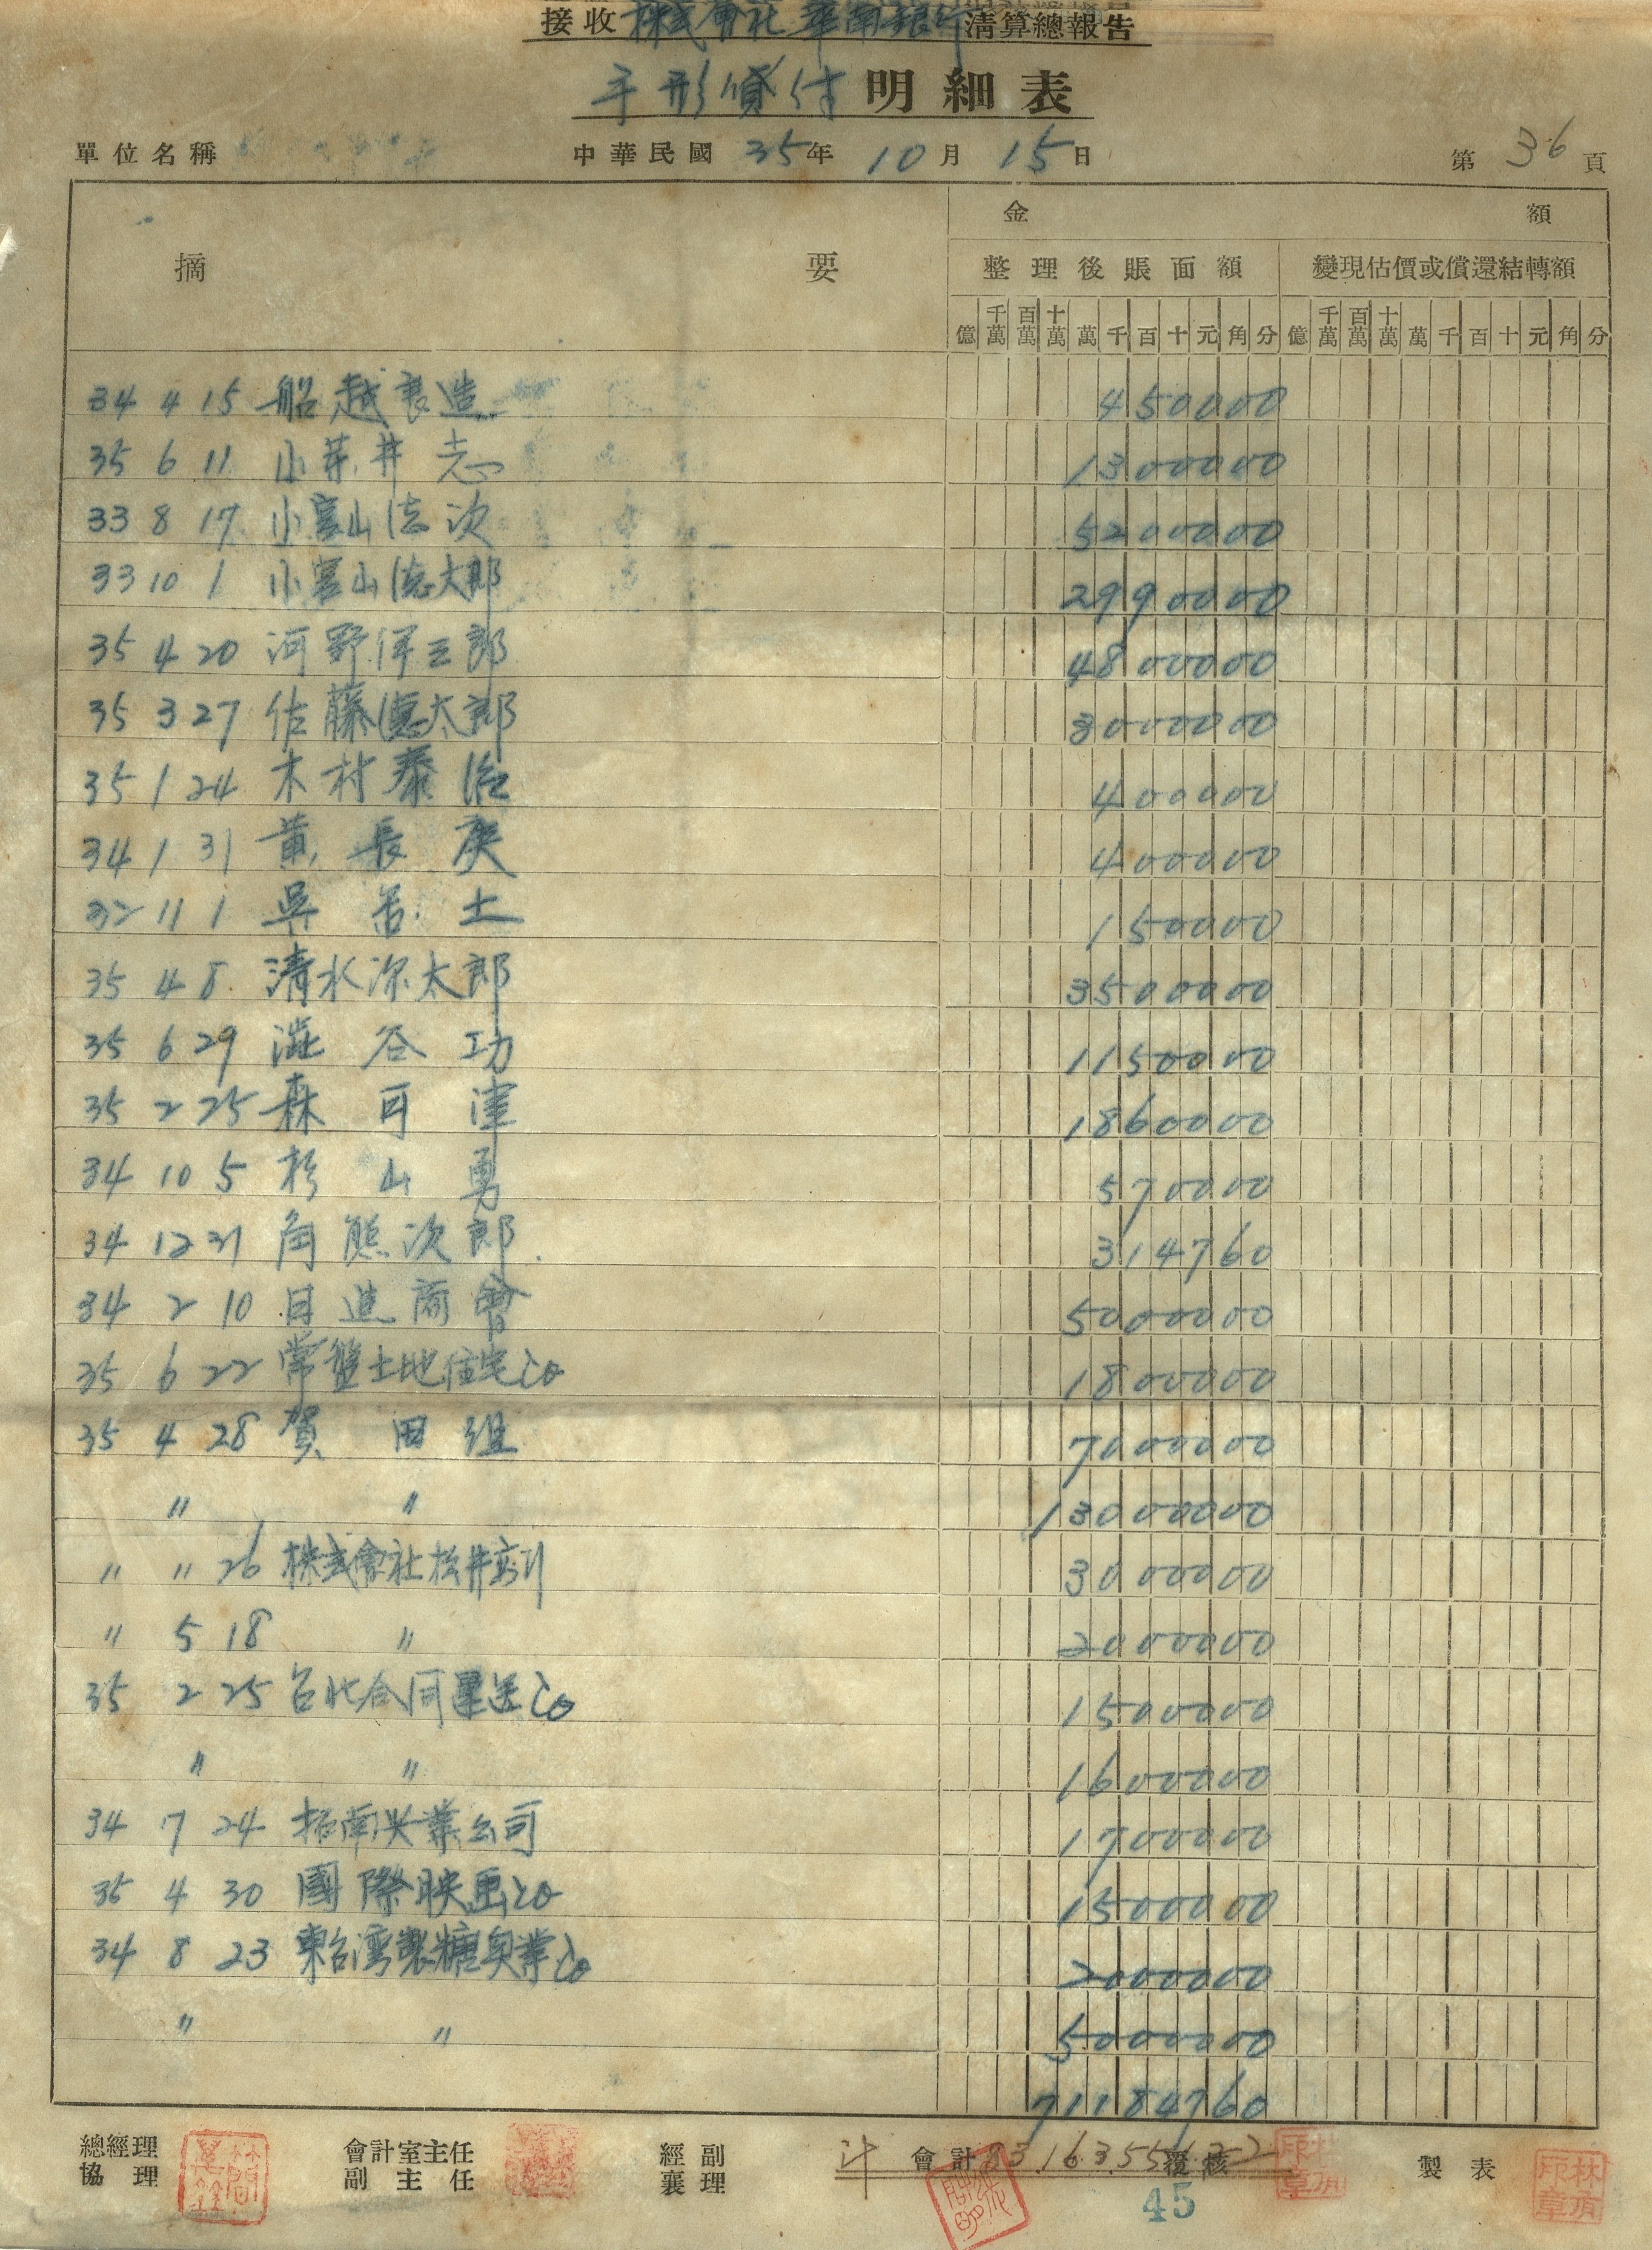 接收 株式會社華南銀行 清算總報告
手形貸付 明細表
單位名稱 中華民國 35 年 10 月 15 日 第 36 頁
摘 要 金 額
整理後賬面額 變現估價或償還結轉額
億 千萬 百萬 十萬 萬 千 百 十 元 角 分 億 千萬 百萬 十萬 萬 千 百 十 元 角 分
34 4 15 船越製造 450000
35 6 11 小芽井 志 1300000
33 8 17 小宮山德次 5200000
33 10 1 小宮山德太郎 2990000
35 4 20 河野伊三郎 4800000
35 3 27 佐藤德太郎 3000000
35 1 24 木村泰治 400000
34 1 31 黃長庚 400000
32 11 1 吳 土 150000
35 4 8 清水源太郎 3500000
35 6 29 澁谷功 1150000
35 2 25 森 津 1860000
34 10 5 杉山勇 570000
34 12 31 角熊次郎 314760
34 2 10 日進商會 5000000
35 6 22 常盤土地住宅Co 1800000
35 4 28 賀田組 7000000
〃 〃 13000000
〃 〃 26 株式會社松井商行 3000000
〃 5 18 〃 2000000
35 2 25 台北合同運送Co 1500000
〃 〃 1600000
34 7 24 拓南興業公司 1700000
35 4 30 國際映画Co 1500000
34 8 23 東台灣製糖Co 2000000
〃 〃 5000000
71184760
總經理 協理 會計室主任 副主任 經副 襄理 計 會計 覆核 製表
8316355622
45